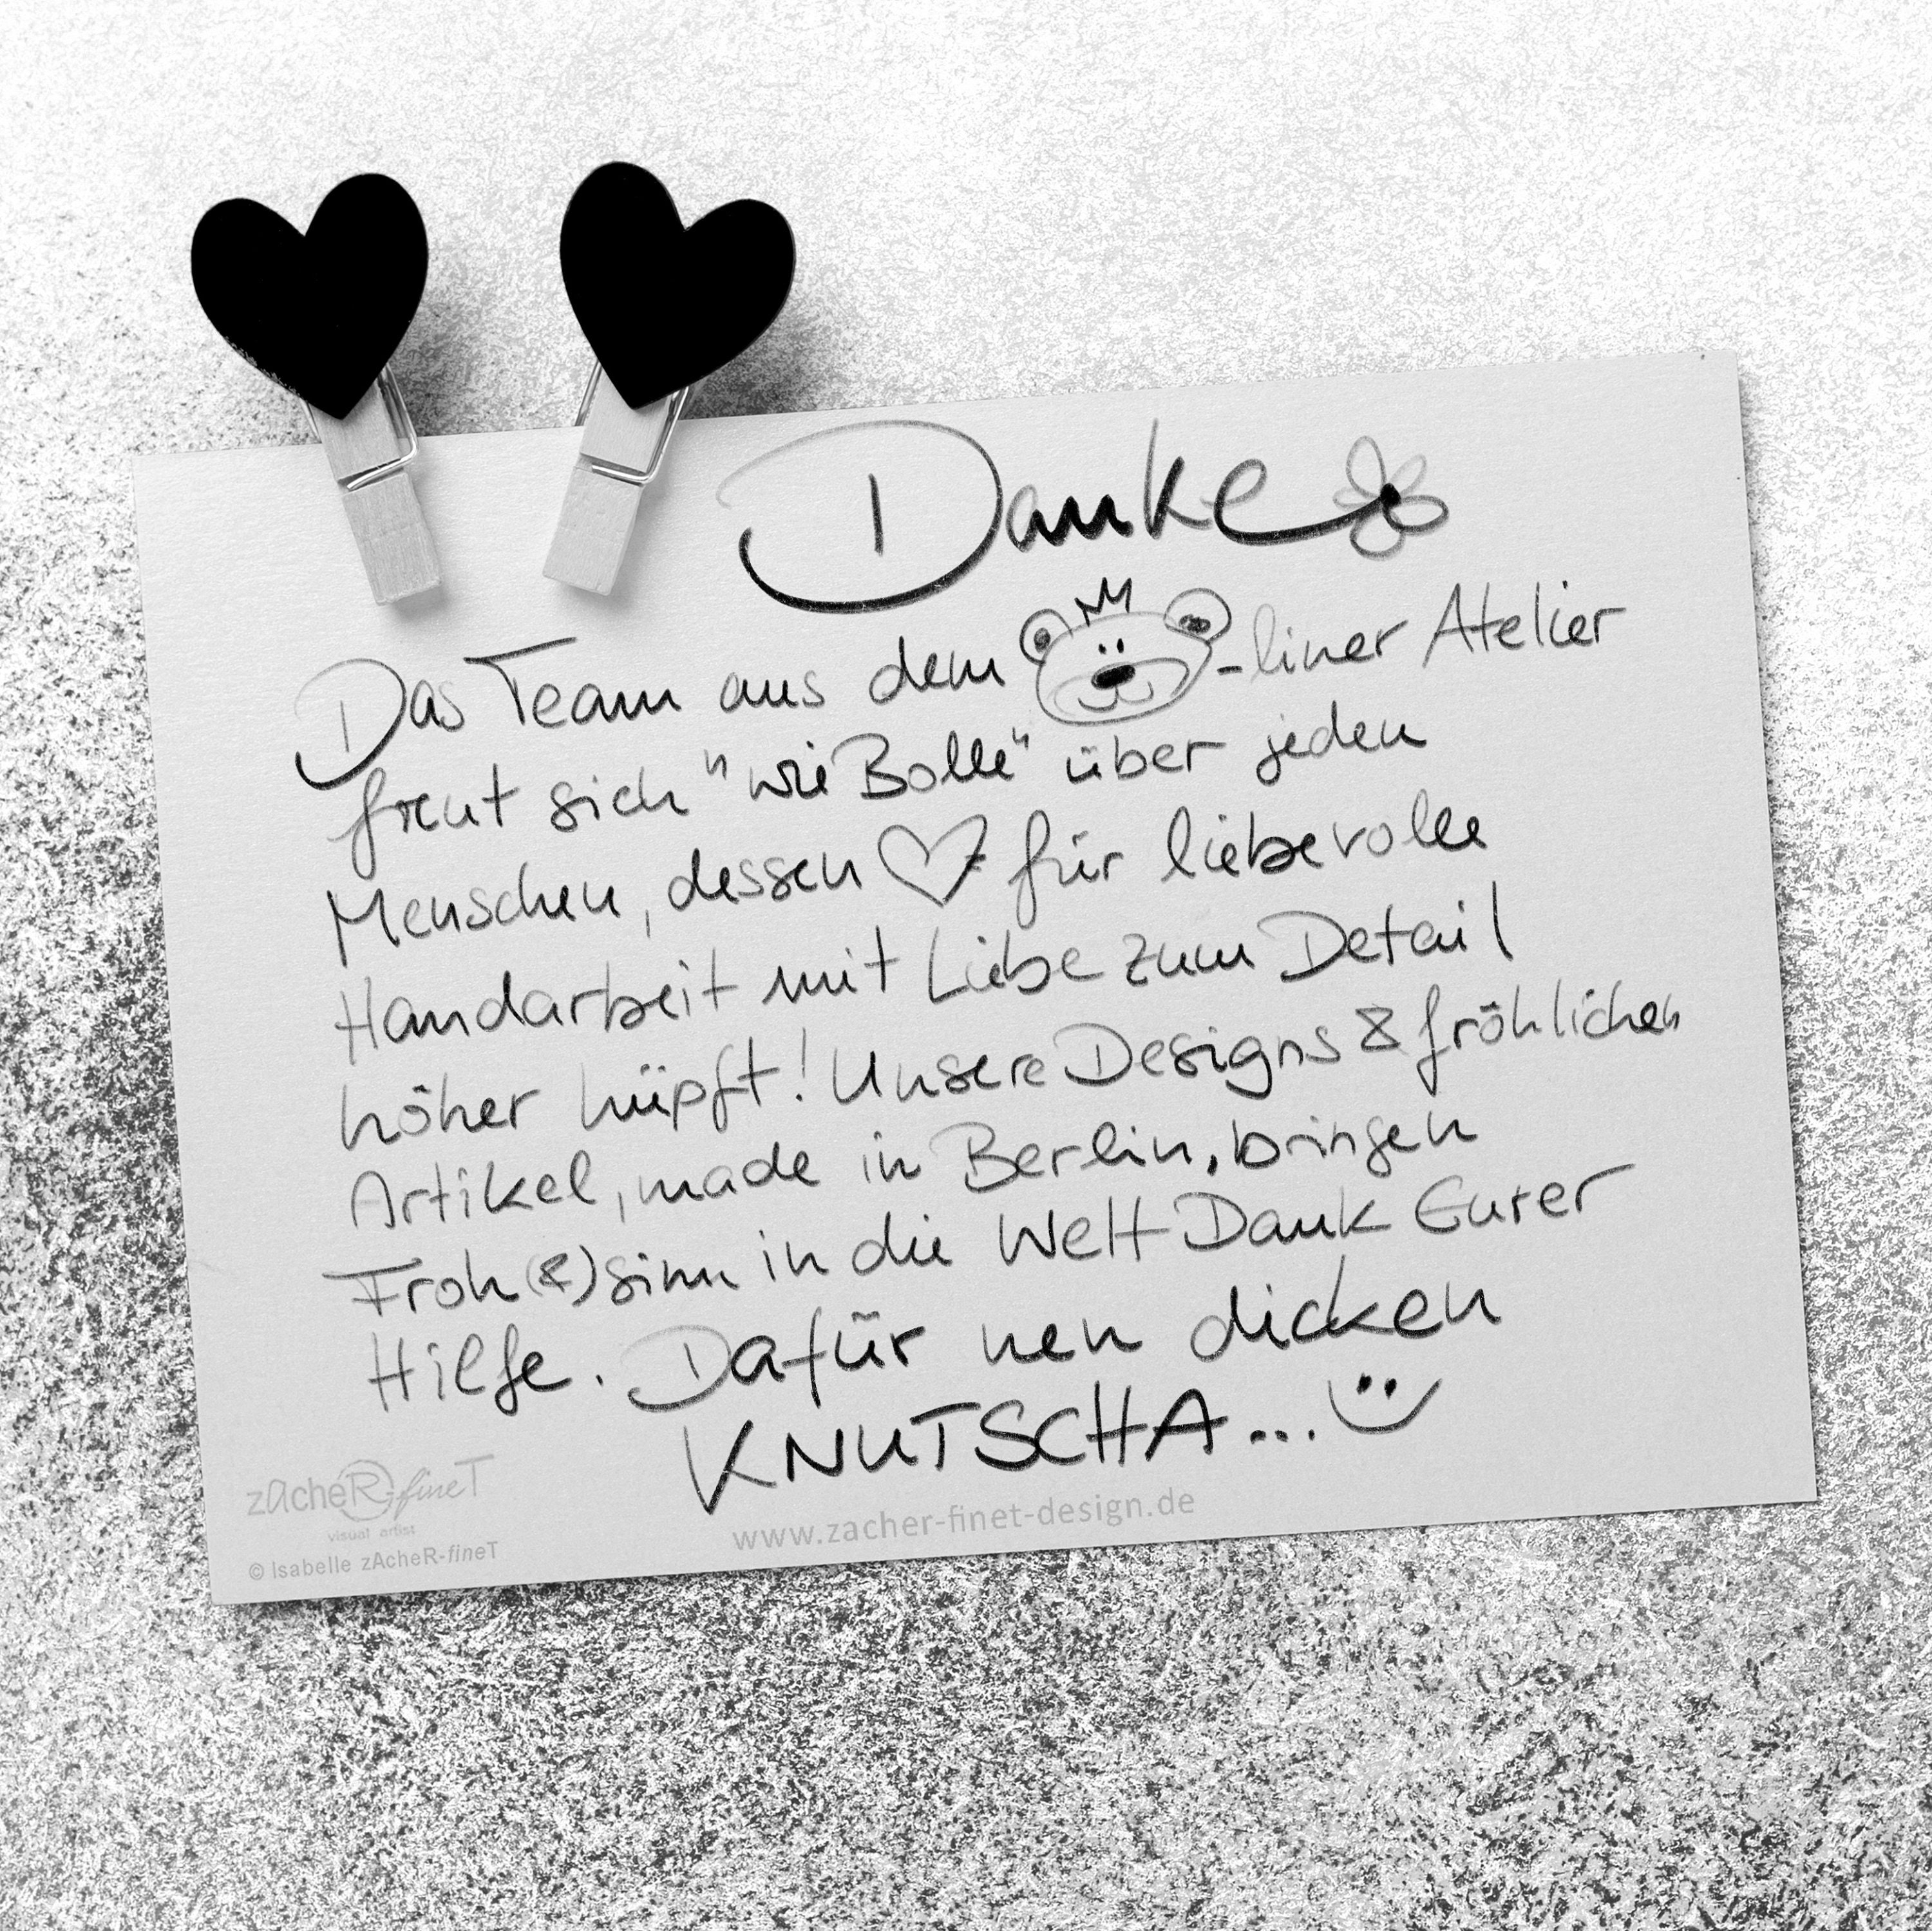 Danke
Das Team aus dem -liner Atelier
freut sich "wie Bolle" über jeden
Menschen, dessen ♡ für liebevolle
Handarbeit mit Liebe zum Detail
höher hüpft! Unsere Designs & fröhlichen
Artikel, made in Berlin, bringen
Froh(&)sinn in die Welt Dank Eurer
Hilfe. Dafür nen dicken
KNUTSCHA... :)
zAcheR-fineT
visual artist
© Isabelle zAcheR-fineT
www.zacher-finet-design.de